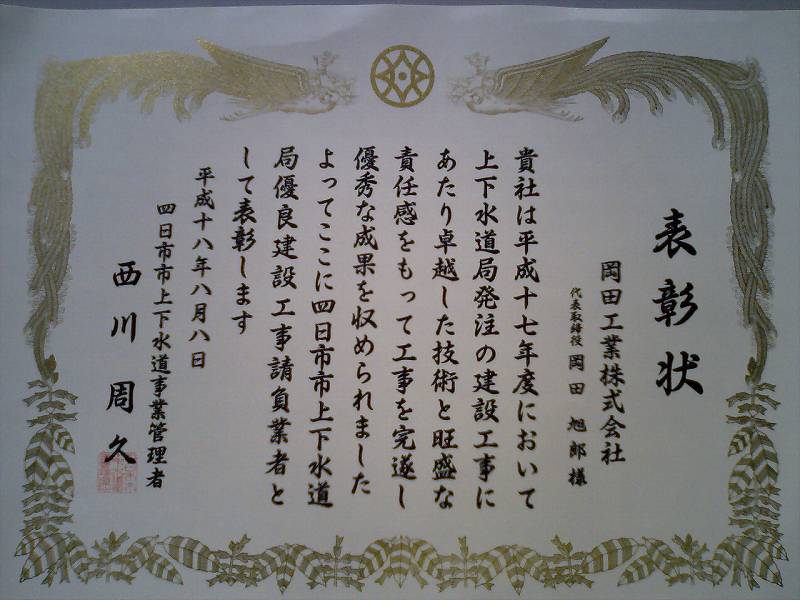 表彰状
岡田工業株式会社
代表取締役 岡田旭郎様
貴社は平成十七年度において
上下水道局発注の建設工事に
あたり卓越した技術と旺盛な
責任感をもって工事を完遂し
優秀な成果を収められました
よってここに四日市市上下水道
局優良建設工事請負業者と
して表彰します
平成十八年八月八日
四日市市上下水道事業管理者
西川周久